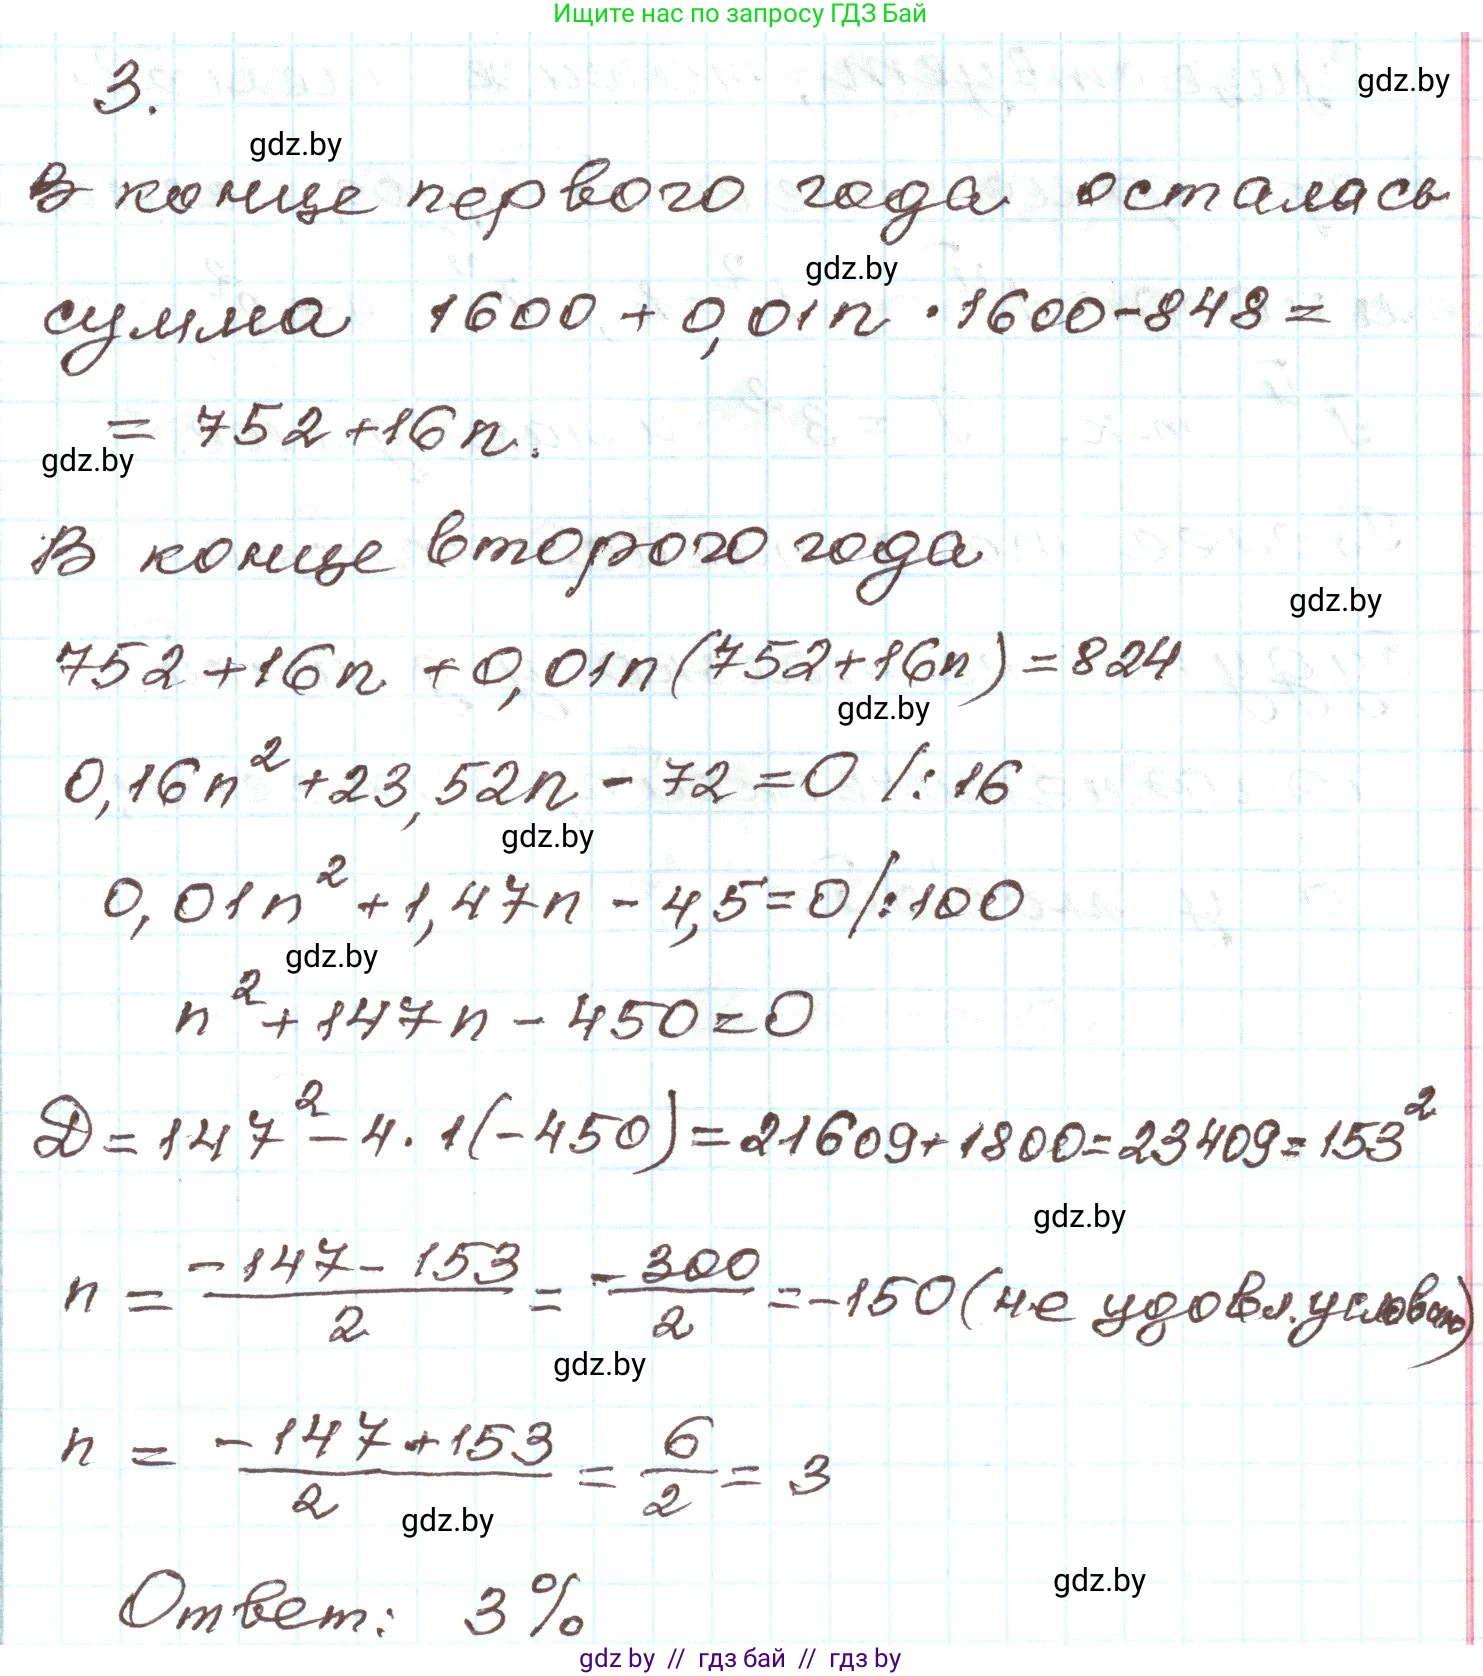 Ищите нас по запросу ГДЗ Бай
3.
gdz.by
gdz.by
В конце первого года осталась
gdz.by
сумма 1600 + 0,01n · 1600 - 848 =
= 752 + 16n.
gdz.by
В конце второго года
gdz.by
752 + 16n + 0,01n(752 + 16n) = 824
gdz.by
0,16n² + 23,52n - 72 = 0 /: 16
gdz.by
0,01n² + 1,47n - 4,5 = 0 /: 100
gdz.by
n² + 147n - 450 = 0
D = 147² - 4 · 1(-450) = 21609 + 1800 = 23409 = 153²
gdz.by
n = (-147 - 153)/2 = -300/2 = -150 (не удовл. условию)
gdz.by
n = (-147 + 153)/2 = 6/2 = 3
gdz.by
gdz.by
Ответ: 3%
gdz by // гдз бай // гдз by